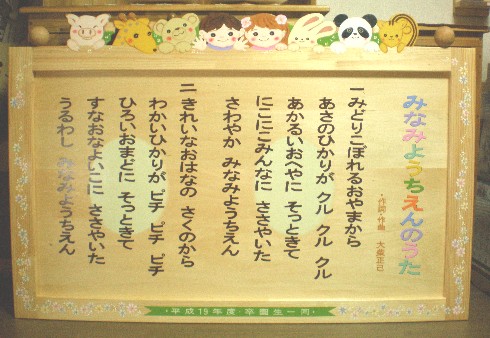 みなみようちえんのうた
・作詞・作曲 大柴正己
一 みどりこぼれるおやまから
あさのひかりが クル クル クル
あかるいおへやに そっときて
にこにこみんなに ささやいた
さわやか みなみようちえん
二 きれいなおはなの さくのから
わかいひかりが ピチ ピチ ピチ
ひろいおまどに そっときて
すなおなよいこに ささやいた
うるわし みなみようちえん
・平成19年度・卒園生一同・